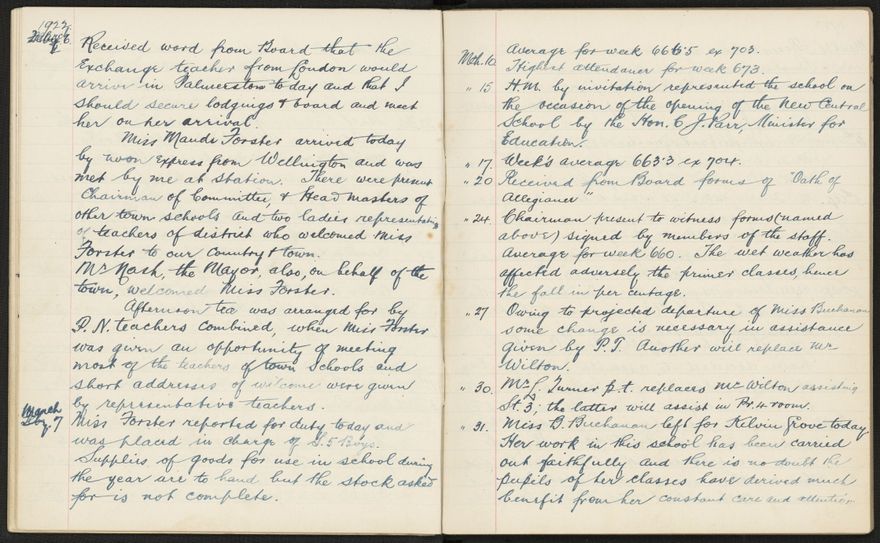 1922
6
Received word from Board that the
Exchange teacher from London would
arrive in Palmerston today and that I
should secure lodgings & board and meet
her on her arrival.
Miss Maude Forster arrived today
by noon express from Wellington and was
met by me at station. There were present
Chairman of Committee, & Head masters of
other town schools and two ladies representating
of teachers of district who welcomed Miss
Forster to our country & town.
Mr Nash, the Mayor, also, on behalf of the
town, welcomed Miss Forster.
Afternoon tea was arranged for by
P.N. teachers combined, when Miss Forster
was given an opportunity of meeting
most of the teachers of town schools and
short addresses of welcome were given
by representative teachers.
March
7 Miss Forster reported for duty today and
was placed in charge of S.5 Boys.
Supplies of goods for use in school during
the year are to hand but the stock asked
for is not complete.
Mch. 10 Average for week 666.5 ex 703.
Highest attendance for week 673.
" 15 H.M. by invitation represented the school on
the occasion of the opening of the New Central
School by the Hon. C. J. Parr, Minister for
Education.
" 17 Week's average 663.3 ex 704.
" 20 Received from Board forms of "Oath of
Allegiance"
" 24 Chairman present to witness forms (named
above) signed by members of the staff.
Average for week 660. The wet weather has
affected adversely the primer classes, hence
the fall in per centage.
" 27 Owing to projected departure of Miss Buchanan
some change is necessary in assistance
given by P.T. Another will replace Mr
Wilton.
" 30. Mr L. Turner p.t. replaces Mr Wilton assisting
St. 3; the latter will assist in Pr. 4 room.
" 31. Miss B. Buchanan left for Kelvin Grove today.
Her work in this school has been carried
out faithfully and there is no doubt the
pupils of her classes have derived much
benefit from her constant care and attention